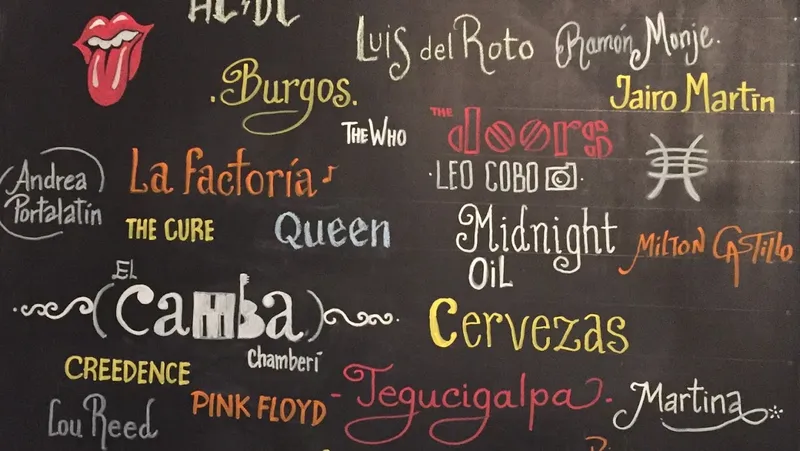 AC/DC
Luis del Roto
Ramón Monje.
.Burgos.
Jairo Martín
THE WHO
THE doors
Andrea
Portalatín
La factoría
·LEO COBO
THE CURE
Queen
Midnight
OiL
MILTON CASTillo
EL
camba
Chamberí
Cervezas
CREEDENCE
-Tegucigalpa.
Martina
Lou Reed
PINK FLOYD